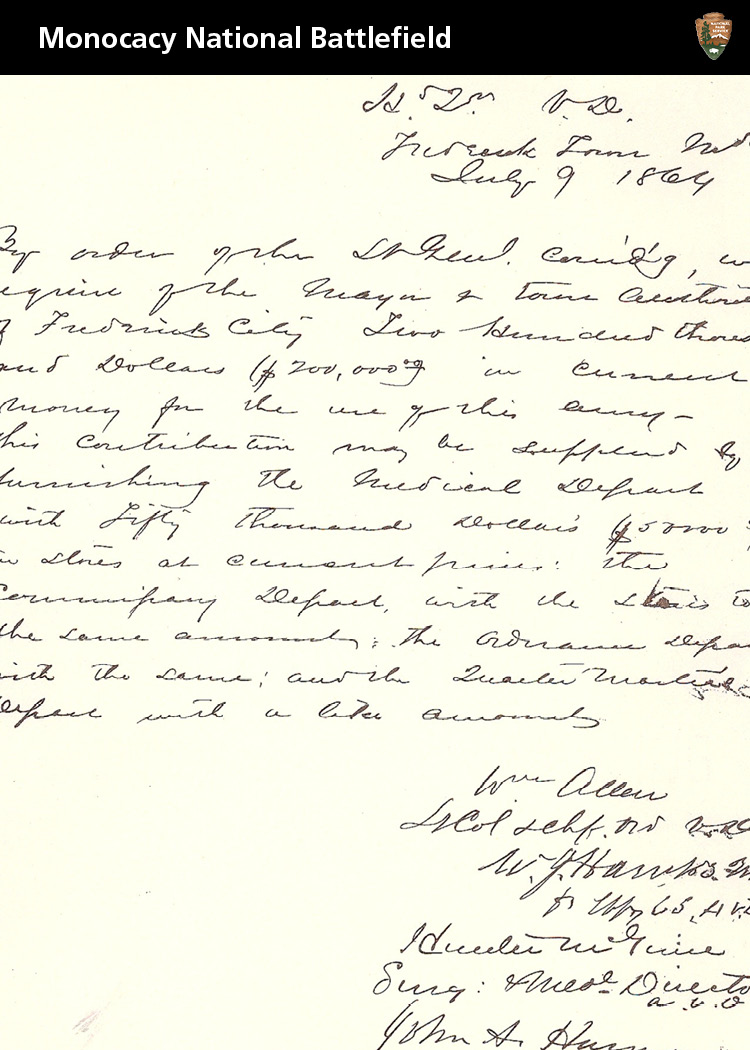 Monocacy National Battlefield
NATIONAL
PARK
SERVICE
Hd Qrs V. D.
Frederick Town Md
July 9 1864
By order of the Lt Genl. Comd'g, we
require of the Mayor & town
of Frederick City Two Hundred thous
and Dollars ($200,000) in current
money for the use of this army –
This contribution may be supplied by
furnishing the Medical Depart
with Fifty thousand dollars ($50000
in stores at current prices: the
Commissary Depart, with the stores to
the same amount; the Ordnance Depa
with the same; and the Quarter Masters
Depart with a like amount
Wm Allen
Lt Col & chf. Ord
W. J. Hawks
Hunter McGuire
Surg: & Medl Directo
John A. Har